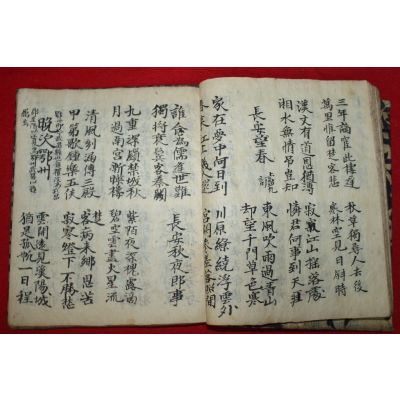 三年謫宦此棲遲
萬里惟留楚客悲
秋草獨尋人去後
寒林空見日斜時
漢文有道恩猶薄
湘水無情弔豈知
寂寂江山搖落處
憐君何事到天涯
長安望春 盧綸
東風吹雨過青山
却望千門草色寒
家在夢中何日到
春來江上幾人還
川原繚繞浮雲外
宮闕參差落照間
誰念為儒逢世難
獨將衰鬢客秦關
長安秋夜即事
九重深鎖禁城秋
月過南宮漸映樓
紫陌夜深槐露滴
碧空雲盡火星流
清風刻漏傳三殿
甲第歌鐘樂五侯
楚客病來鄉思苦
寂寥燈下不勝愁
晚次鄂州
雲開遠見漢陽城
猶是孤帆一日程